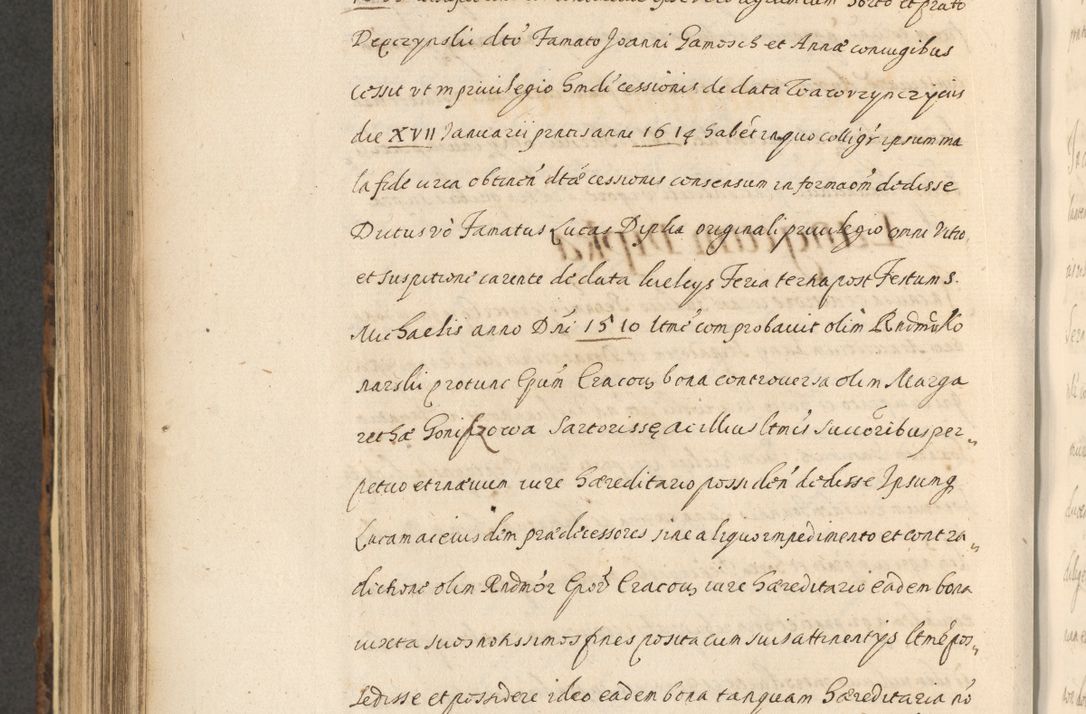 Depczynslii dtō Famato Joanni Gamosch et Annæ coniugibus
cessit vt in priuilegio hmōi cessionis de data Wawrzynczyciis
die XVII Januarii pntis anni 1614 habēt in quo colligr ipsum ma
la fide circa obtinen dtæ cessionis consensum informaōm dedisse
Dictus vō Famatus Lucas Dipka originali priuilegio omni vitio
et suspitione carente de data Kielcijs Feria tertia post Festum S.
Michaelis anno Dnī 1510 ltmē comprobauit olim Rndmū Ko
narslii protunc Epūm Cracou bona controuersa olim Marga
rethæ Goniszowa Sartorissę ac illius ltmis successoribus per
petuo et in æuum iure hæreditario possiden dedisse Ipsumq
Lucam ac eiusdem prædecessores sine aliquo impedimento et contra
dictione olim Rndmōr Epōr Cracou iure hæreditario eadem bona
iuxta suos notissimos fines posita cum suis attinentijs ltmē pos
sedisse et possidere ideo eadem bona tanquam hæreditaria nō